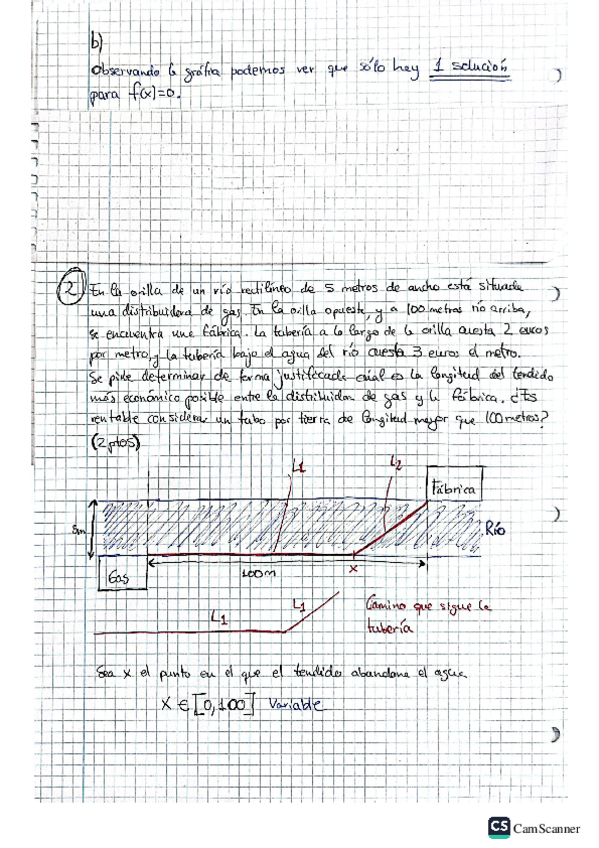 b)
Observando la gráfica podemos ver que sólo hay 1 solución
para f(x)=0.
2 En la orilla de un río rectilíneo de 5 metros de ancho está situada
una distribuidora de gas. En la orilla opuesta, y a 100 metros río arriba,
se encuentra una fábrica. La tubería a lo largo de la orilla cuesta 2 euros
por metro, y la tubería bajo el agua del río cuesta 3 euros el metro.
Se pide determinar de forma justificada cuál es la longitud del tendido
más económico posible entre la distribuidora de gas y la fábrica. ¿Es
rentable considerar un tubo por tierra de longitud mayor que 100 metros?
(2 ptos)
L1
L2
Fábrica
5m
Río
100m
x
Gas
L1
L1
Camino que sigue la
tubería
Sea x el punto en el que el tendido abandona el agua.
X ∈ [0,100] Variable
CS CamScanner